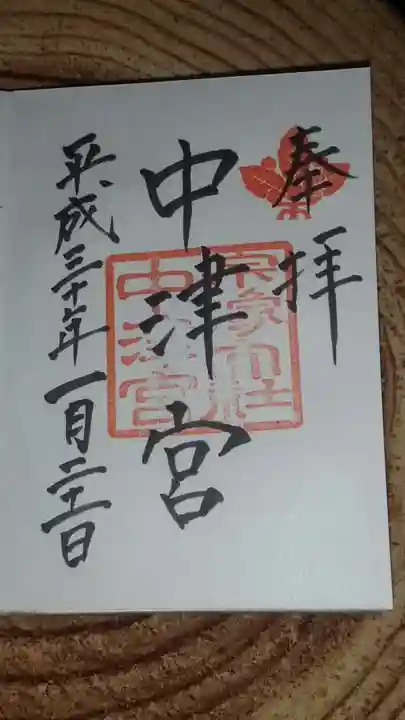 奉拝
中津宮
宗像大社
中津宮
平成三十年一月二十一日